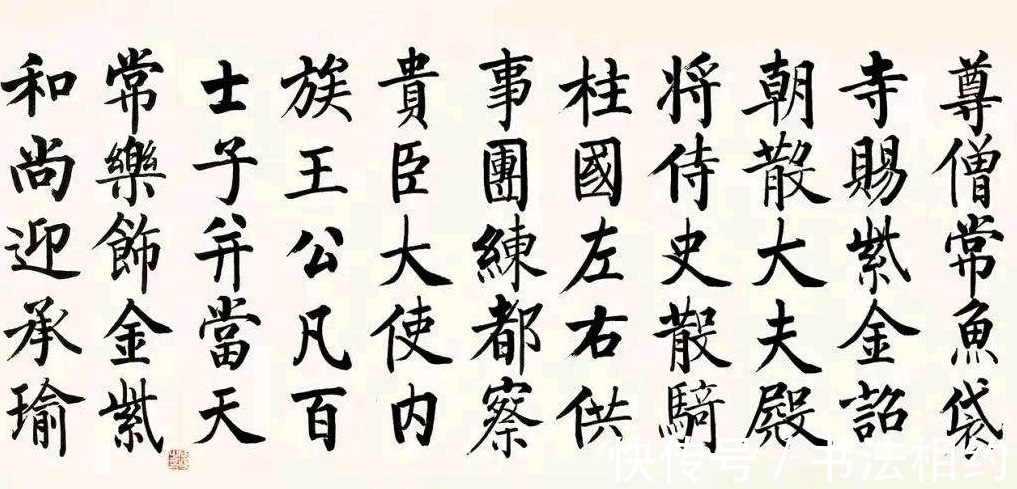 尊僧常魚袋
寺賜紫金詔
朝散大夫殿
将侍史散騎
柱國左右供
事團練都察
貴臣大使内
族王公凡百
士子并當天
常樂飾金紫
和尚迎承瑜
快传号 / 书法相约